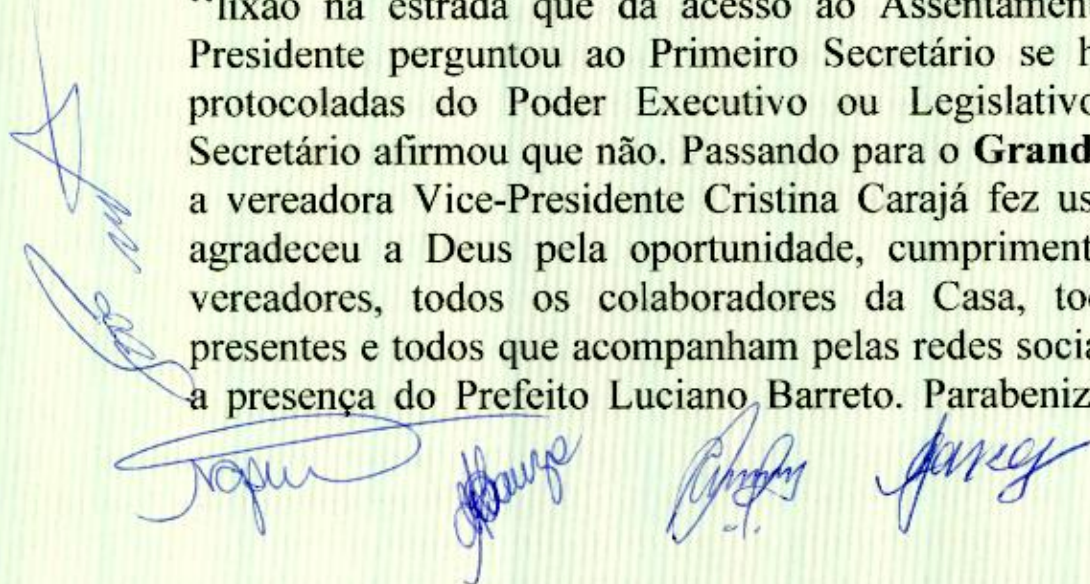 "lixão na estrada que dá acesso ao Assentamen
Presidente perguntou ao Primeiro Secretário se h
protocoladas do Poder Executivo ou Legislativo
Secretário afirmou que não. Passando para o Grand
a vereadora Vice-Presidente Cristina Carajá fez us
agradeceu a Deus pela oportunidade, cumpriment
vereadores, todos os colaboradores da Casa, to
presentes e todos que acompanham pelas redes socia
a presença do Prefeito Luciano Barreto. Parabeniz